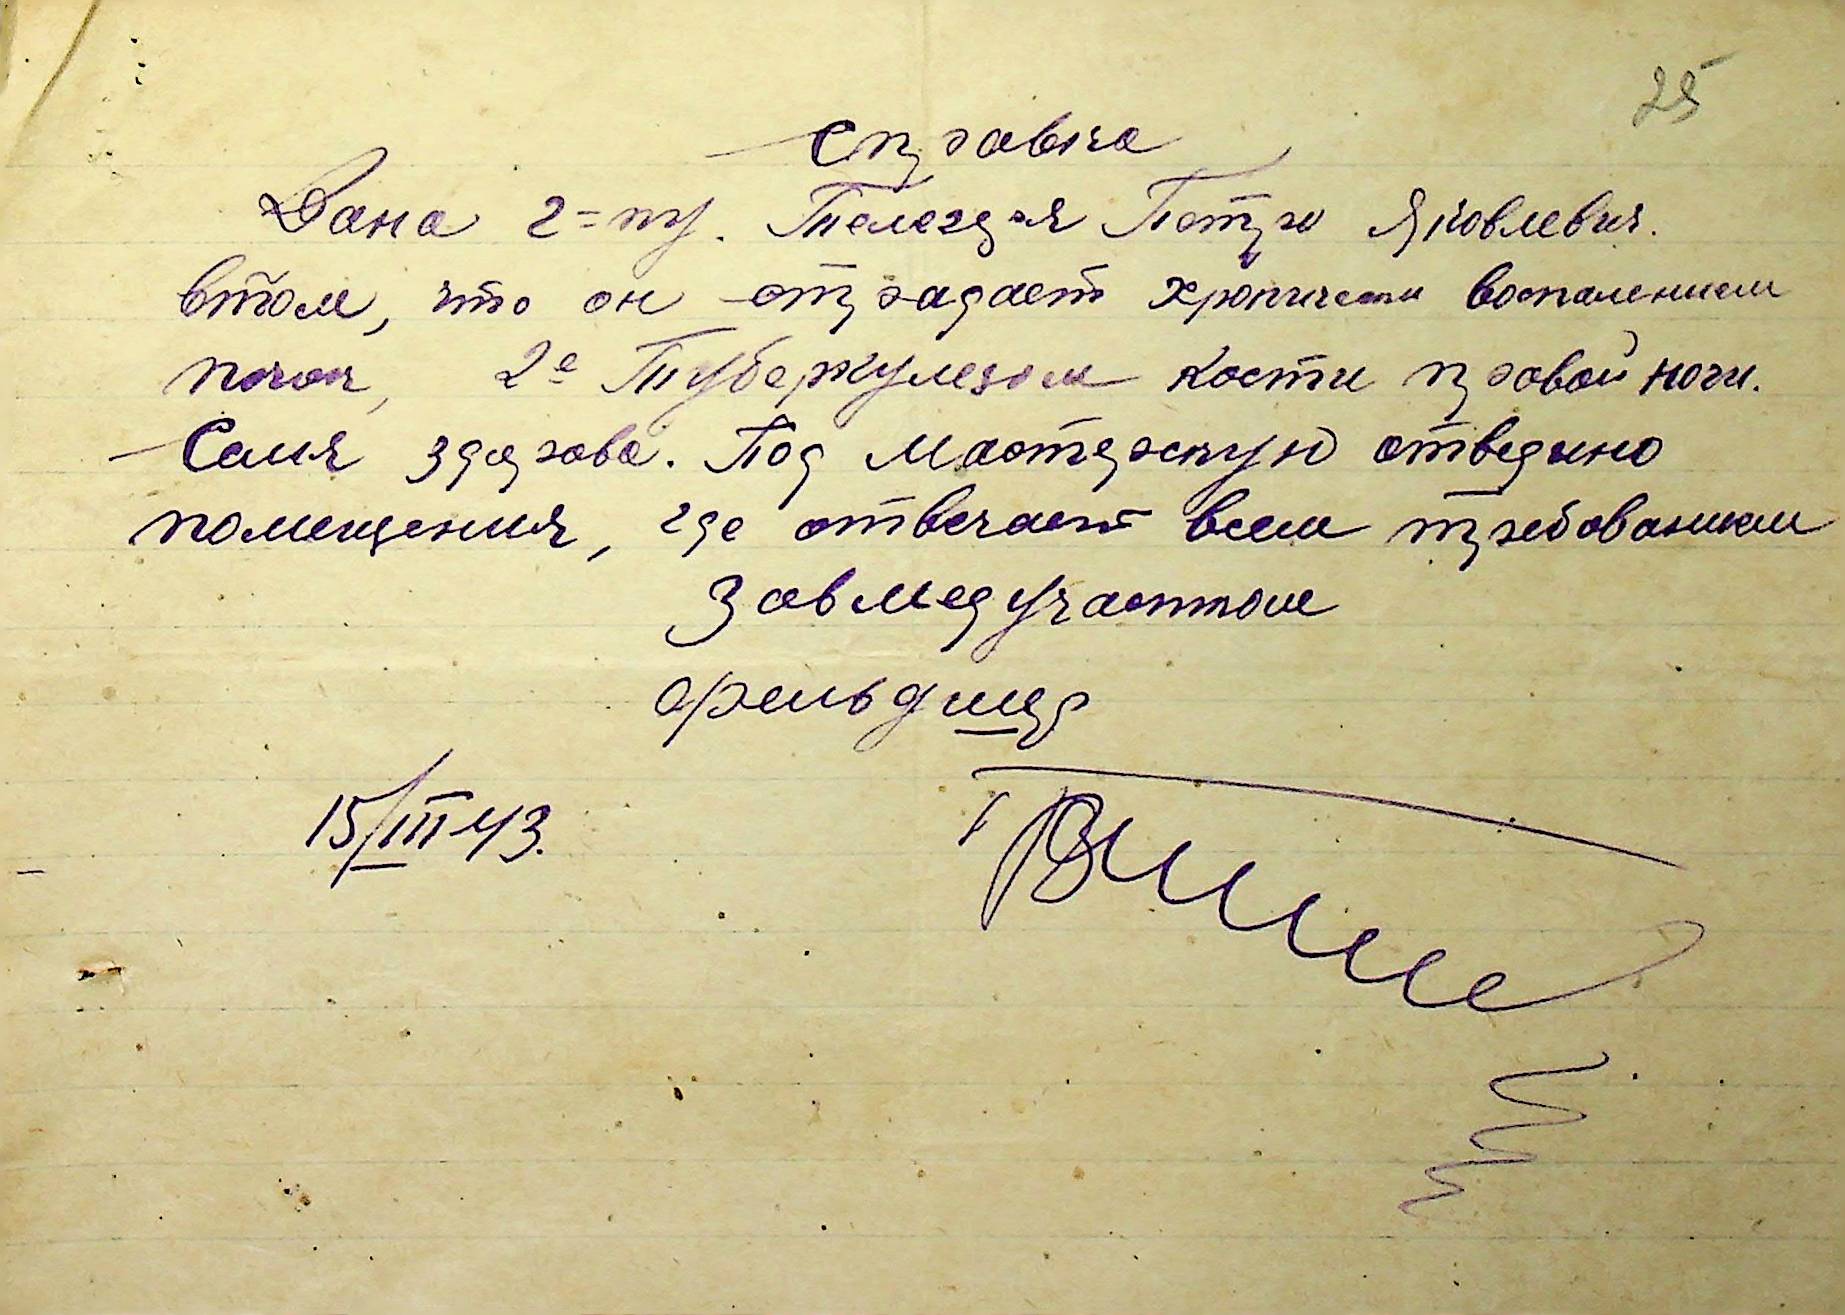 25
Справка
Дана г=ну. Петру Яковлевич.
втом, что он страдает хроническ воспалением
почек, 2е Туберкулезом кости правой ноги.
Семя здорова. Под мастерскую отведено
помещения, где отвечает всем требованием
Завмедучастком
фельдшер
15/III 43.